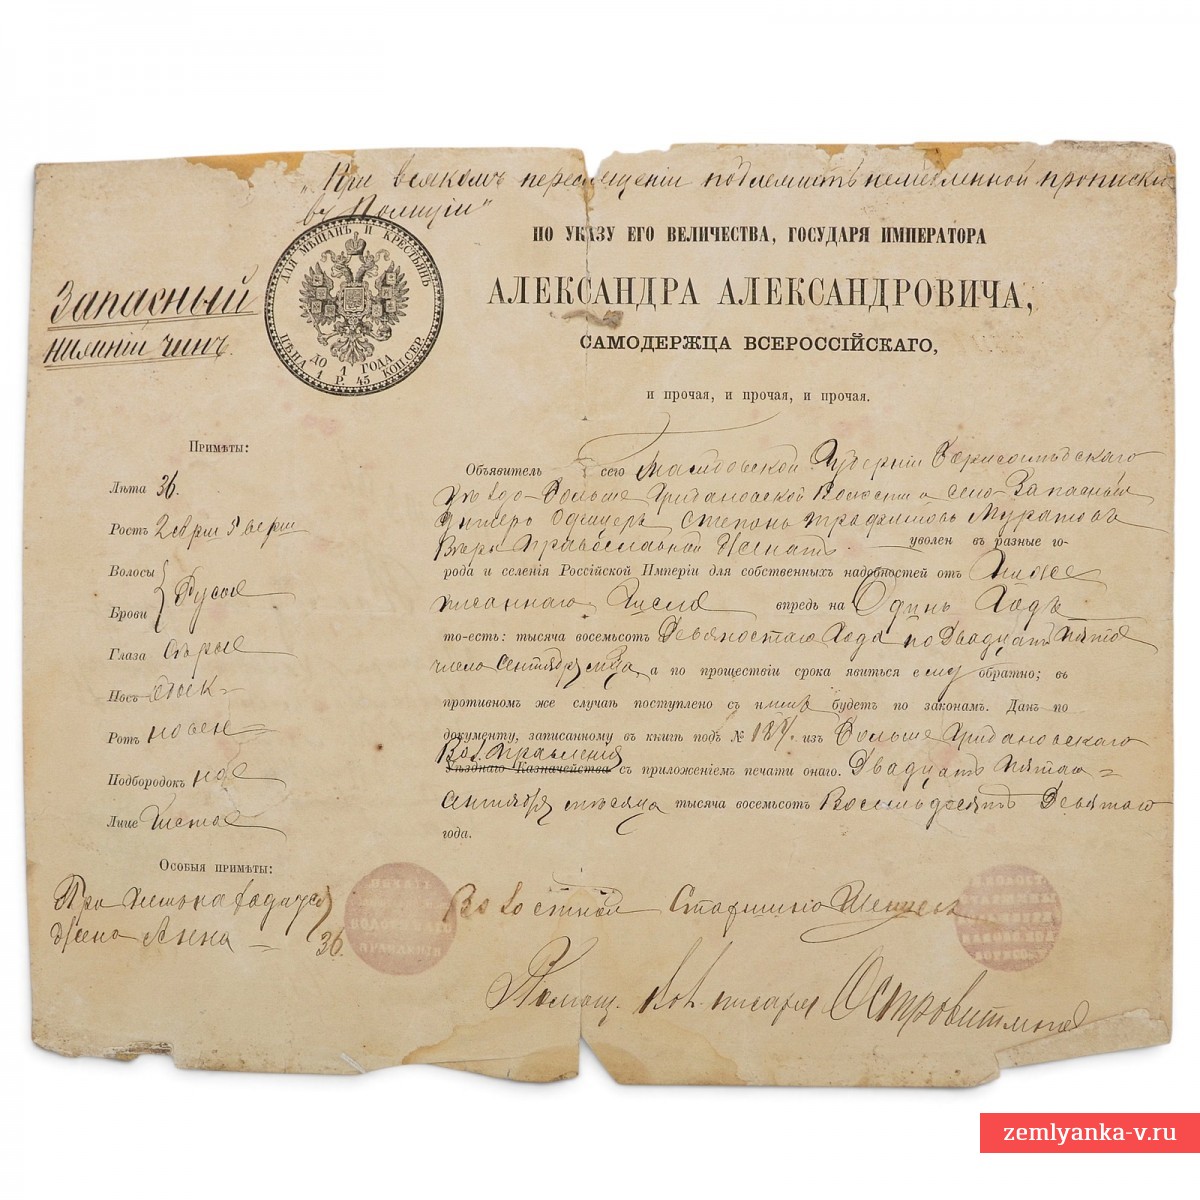 „При всякомъ перемѣщеніи подлежитъ немедленной прописки
въ Полиціи"
Запасный
нижній чинъ.
ДЛЯ МѢЩАНЪ И КРЕСТЬЯНЪ
ДО 1 ГОДА
ЦѢНА 1 Р. 45 КОП. СЕР.
ПО УКАЗУ ЕГО ВЕЛИЧЕСТВА, ГОСУДАРЯ ИМПЕРАТОРА
АЛЕКСАНДРА АЛЕКСАНДРОВИЧА,
САМОДЕРЖЦА ВСЕРОССІЙСКАГО,
и прочая, и прочая, и прочая.
Примѣты:
Лѣта 36.
Ростъ 2 арш 5 верш
Волосы
Брови
Русые
Глаза Сѣрые
Носъ
Ротъ
Подбородокъ
Лице Чистое
Особыя примѣты:
жена Анна 36.
Объявитель сего Тамбовской Губерніи Борисоглѣбскаго
Уѣзда Больше Грибановской Волости и села Запасный
Унтеръ Офицеръ Степанъ Трофимовъ Муратовъ
Вѣры Православной уволен въ разные го-
рода и селенія Россійской Имперіи для собственныхъ надобностей отъ Ниже
писаннаго Числа впредь на Одинъ Годъ
то-есть: тысяча восемьсотъ Девяностаго Года по Двадцать Пятое
число Сентября м-ца, а по прошествіи срока явиться ему обратно; въ
противномъ же случаѣ поступлено съ нимъ будетъ по законамъ. Данъ по
документу, записанному въ книгѣ подъ № изъ Больше Грибановскаго
Вол. Правленія
Уѣзднаго Казначейства съ приложеніемъ печати онаго. Двадцать Пятаго
Сентября мѣсяца тысяча восемьсотъ Восемьдесятъ Девятаго
года.
Волостной Старшина
Помощ. Вол. писаря
zemlyanka-v.ru